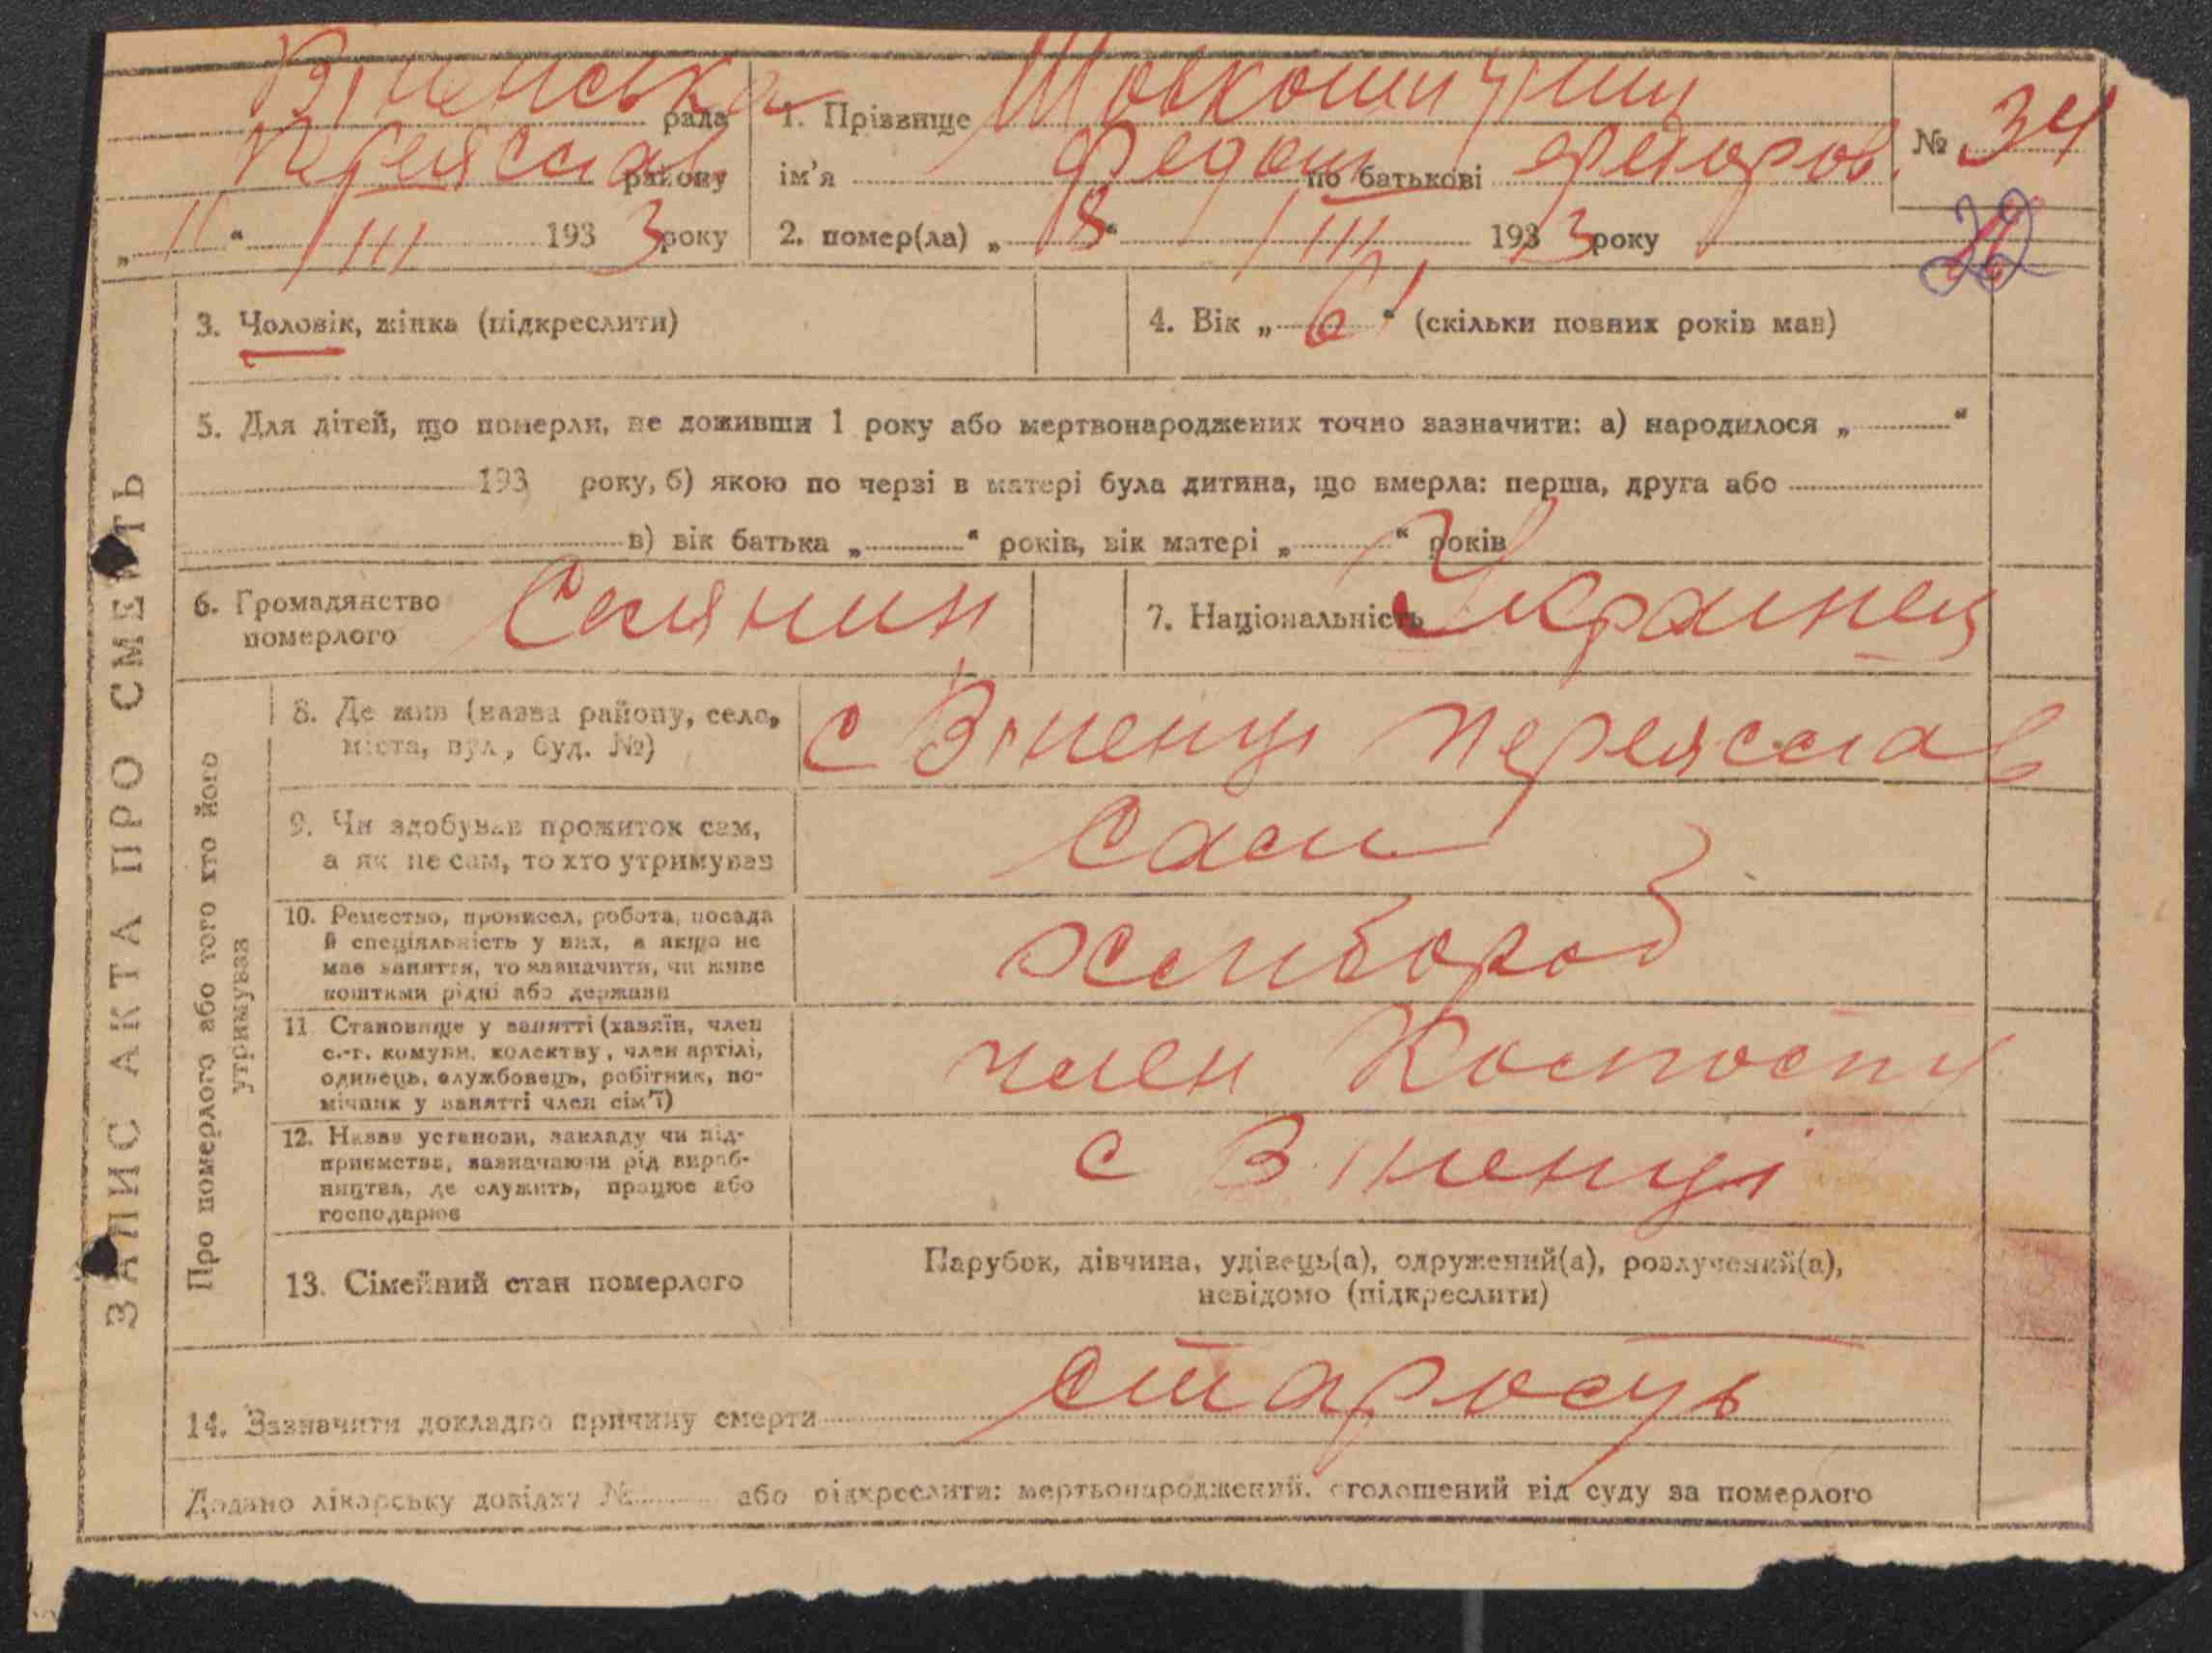 Віненська рада
Переяслав району
„ 11 “ / III 1933 року
1. Прізвище
ім’я Федош по батькові
2. помер(ла) „ “ / III 1933 року
№ 34
ЗАПИС АКТА ПРО СМЕРТЬ
3. Чоловік, жінка (підкреслити)
4. Вік „ “ (скільки повних років мав)
5. Для дітей, що померли, не доживши 1 року або мертвонароджених точно зазначити: а) народилося „ “
193 року, б) якою по черзі в матері була дитина, що вмерла: перша, друга або
в) вік батька „ “ років, вік матері „ “ років
6. Громадянство
померлого
Селянин
7. Національність Украинец
Про померлого або того хто його
утримував
8. Де жив (назва району, села,
міста, вул., буд. №)
с Віненці Переяслав
9. Чи здобував прожиток сам,
а як не сам, то хто утримував
Сам
10. Ремество, промисел, робота, посада
й спеціяльність у них, а якщо не
має заняття, то зазначити, чи живе
коштами рідні або держави
хлібороб
11 Становище у занятті (хазяїн, член
с.-г. комуни, колективу, член артілі,
одинець, службовець, робітник, по-
мічник у занятті член сім’ї)
член Колгоспу
12. Назва установи, закладу чи під-
приємства, зазначаючи рід вироб-
ництва, де служить, працює або
господарює
с Віненці
13. Сімейний стан померлого
Парубок, дівчина, удівець(а), одружений(а), розлучений(а),
невідомо (підкреслити)
14. Зазначити докладно причину смерти старость
Додано лікарську довідку № або підкреслити: мертвонароджений, оголошений від суду за померлого